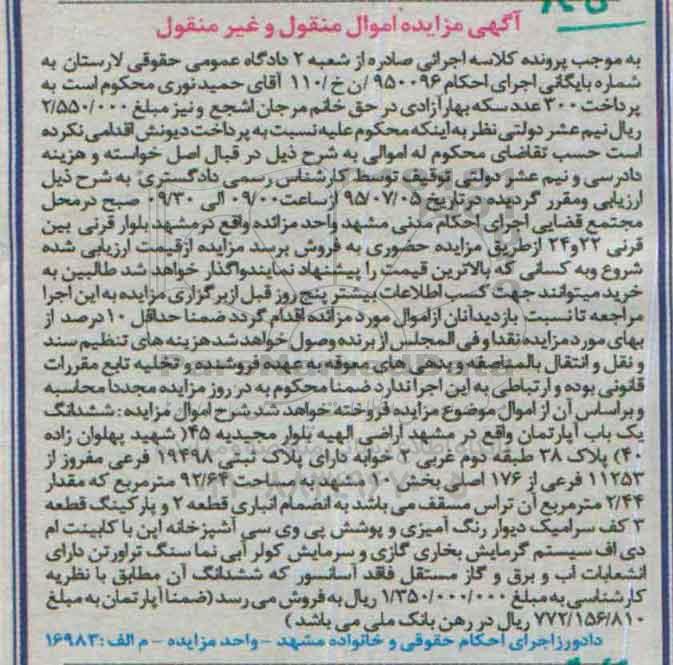 آگهی مزایده اموال منقول و غیر منقول
به موجب پرونده کلاسه اجرائی صادره از شعبه ۲ دادگاه عمومی حقوقی لارستان به
شماره بایگانی اجرای احکام ۹۵۰۰۹۶ /ن خ /۱۱۰ آقای حمید نوری محکوم است به
پرداخت ۳۰۰ عدد سکه بهار آزادی در حق خانم مرجان اشجع و نیز مبلغ ۲/۵۵۰/۰۰۰
ریال نیم عشر دولتی نظر به اینکه محکوم علیه نسبت به پرداخت دیونش اقدامی نکرده
است حسب تقاضای محکوم له اموالی به شرح ذیل در قبال اصل خواسته و هزینه
دادرسی و نیم عشر دولتی توقیف توسط کارشناس رسمی دادگستری به شرح ذیل
ارزیابی ومقرر گردیده درتاریخ ۹۵/۰۷/۰۵ ازساعت ۰۹/۰۰ الی ۰۹/۳۰ صبح درمحل
مجتمع قضایی اجرای احکام مدنی مشهد واحد مزائده واقع درمشهد بلوار قرنی بین
قرنی ۲۲و۲۴ ازطریق مزایده حضوری به فروش برسد مزایده ازقیمت ارزیابی شده
شروع وبه کسانی که بالاترین قیمت را پیشنهاد نمایندواگذار خواهد شد طالبین به
خرید میتوانند جهت کسب اطلاعات بیشتر پنج روز قبل ازبرگزاری مزایده به این اجرا
مراجعه تا نسبت بازدیدآنان ازاموال مورد مزائده اقدام گردد ضمنا حداقل ۱۰درصد از
بهای مورد مزایده نقدا و فی المجلس از برنده وصول خواهد شد هزینه های تنظیم سند
و نقل و انتقال بالمناصفه وبدهی های معوقه به عهده فروشنده و تخلیه تابع مقررات
قانونی بوده و ارتباطی به این اجرا ندارد ضمنا محکوم به در روز مزایده مجددا محاسبه
و براساس آن از اموال موضوع مزایده فروخته خواهد شد شرح اموال مزایده : ششدانگ
یک باب آپارتمان واقع در مشهد اراضی الهیه بلوار مجیدیه ۴۵( شهید پهلوان زاده
۴۰) پلاک ۳۸ طبقه دوم غربی ۲ خوابه دارای پلاک ثبتی ۱۹۴۹۸ فرعی مفروز از
۱۱۲۵۳ فرعی از ۱۷۶ اصلی بخش ۱۰ مشهد به مساحت ۹۲/۶۴ مترمربع که مقدار
۲/۴۴ مترمربع آن تراس مسقف می باشد به انضمام انباری قطعه ۲ و پارکینگ قطعه
۳ کف سرامیک دیوار رنگ آمیزی و پوشش پی وی سی آشپزخانه اپن با کابینت ام
دی اف سیستم گرمایش بخاری گازی و سرمایش کولر آبی نما سنگ تراورتن دارای
انشعابات آب و برق و گاز مستقل فاقد آسانسور که ششدانگ آن مطابق با نظریه
کارشناسی به مبلغ ۱/۳۵۰/۰۰۰/۰۰۰ ریال به فروش می رسد (ضمنا آپارتمان به مبلغ
۷۷۲/۱۵۶/۸۱۰ ریال در رهن بانک ملی می باشد )
دادورز اجرای احکام حقوقی و خانواده مشهد - واحد مزایده - م الف :۱۶۹۸۳